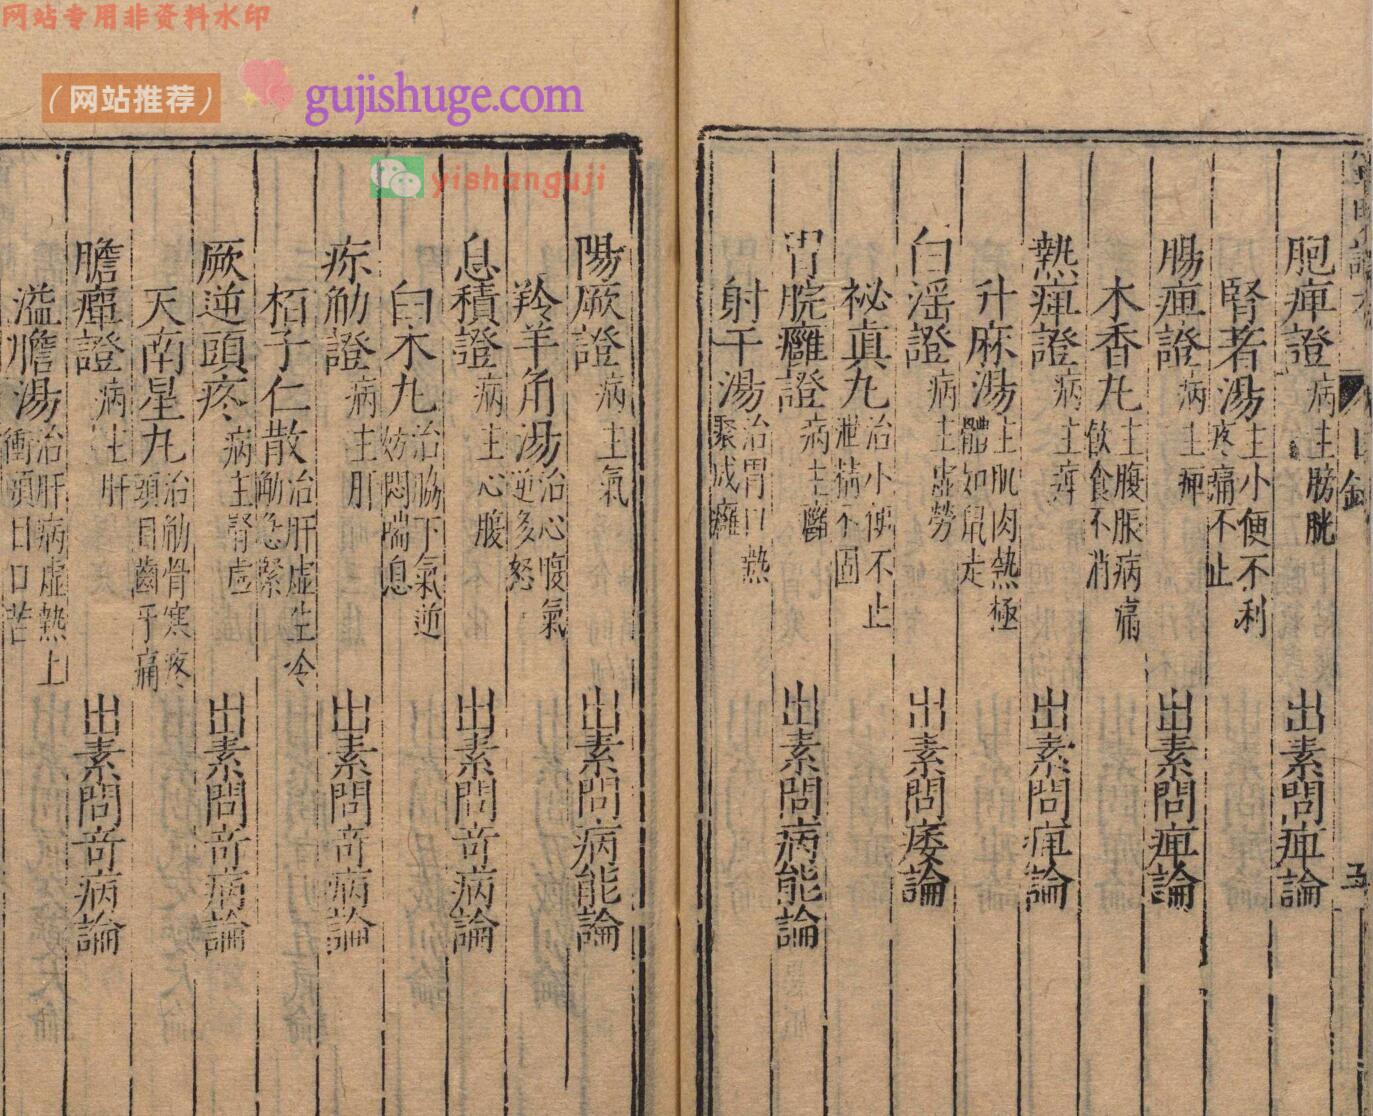 网站专用非资料水印
（网站推荐）
gujishuge.com
yishanguji
胞痺證 病主膀胱 出素問痺論
腎著湯 主小便不利疼痛不止
腸痺證 病主痺 出素問痺論
木香丸 主腹脹病痛飲食不消
熱痺證 病主痺 出素問痺論
升麻湯 主肌肉熱極體如鼠走
白淫證 病主虛勞 出素問痿論
祕真丸 治小便不止泄精不固
胃脘癰證 病主 出素問病能論
射干湯 治胃口熱聚成癰
目錄
五
陽厥證 病主氣 出素問病能論
羚羊角湯 治心腹氣逆多怒
息積證 病主心腹 出素問竒病論
白朮丸 治脇下氣逆妨悶喘息
疹觔證 病主肝 出素問竒病論
栢子仁散 治肝虛生冷觔急緊
厥逆頭疼 病主腎虛 出素問竒病論
天南星丸 治觔骨寒疼頭目齒牙痛
膽癉證 病主肝 出素問竒病論
溢膽湯 治肝病虛熱上衝頭目口苦